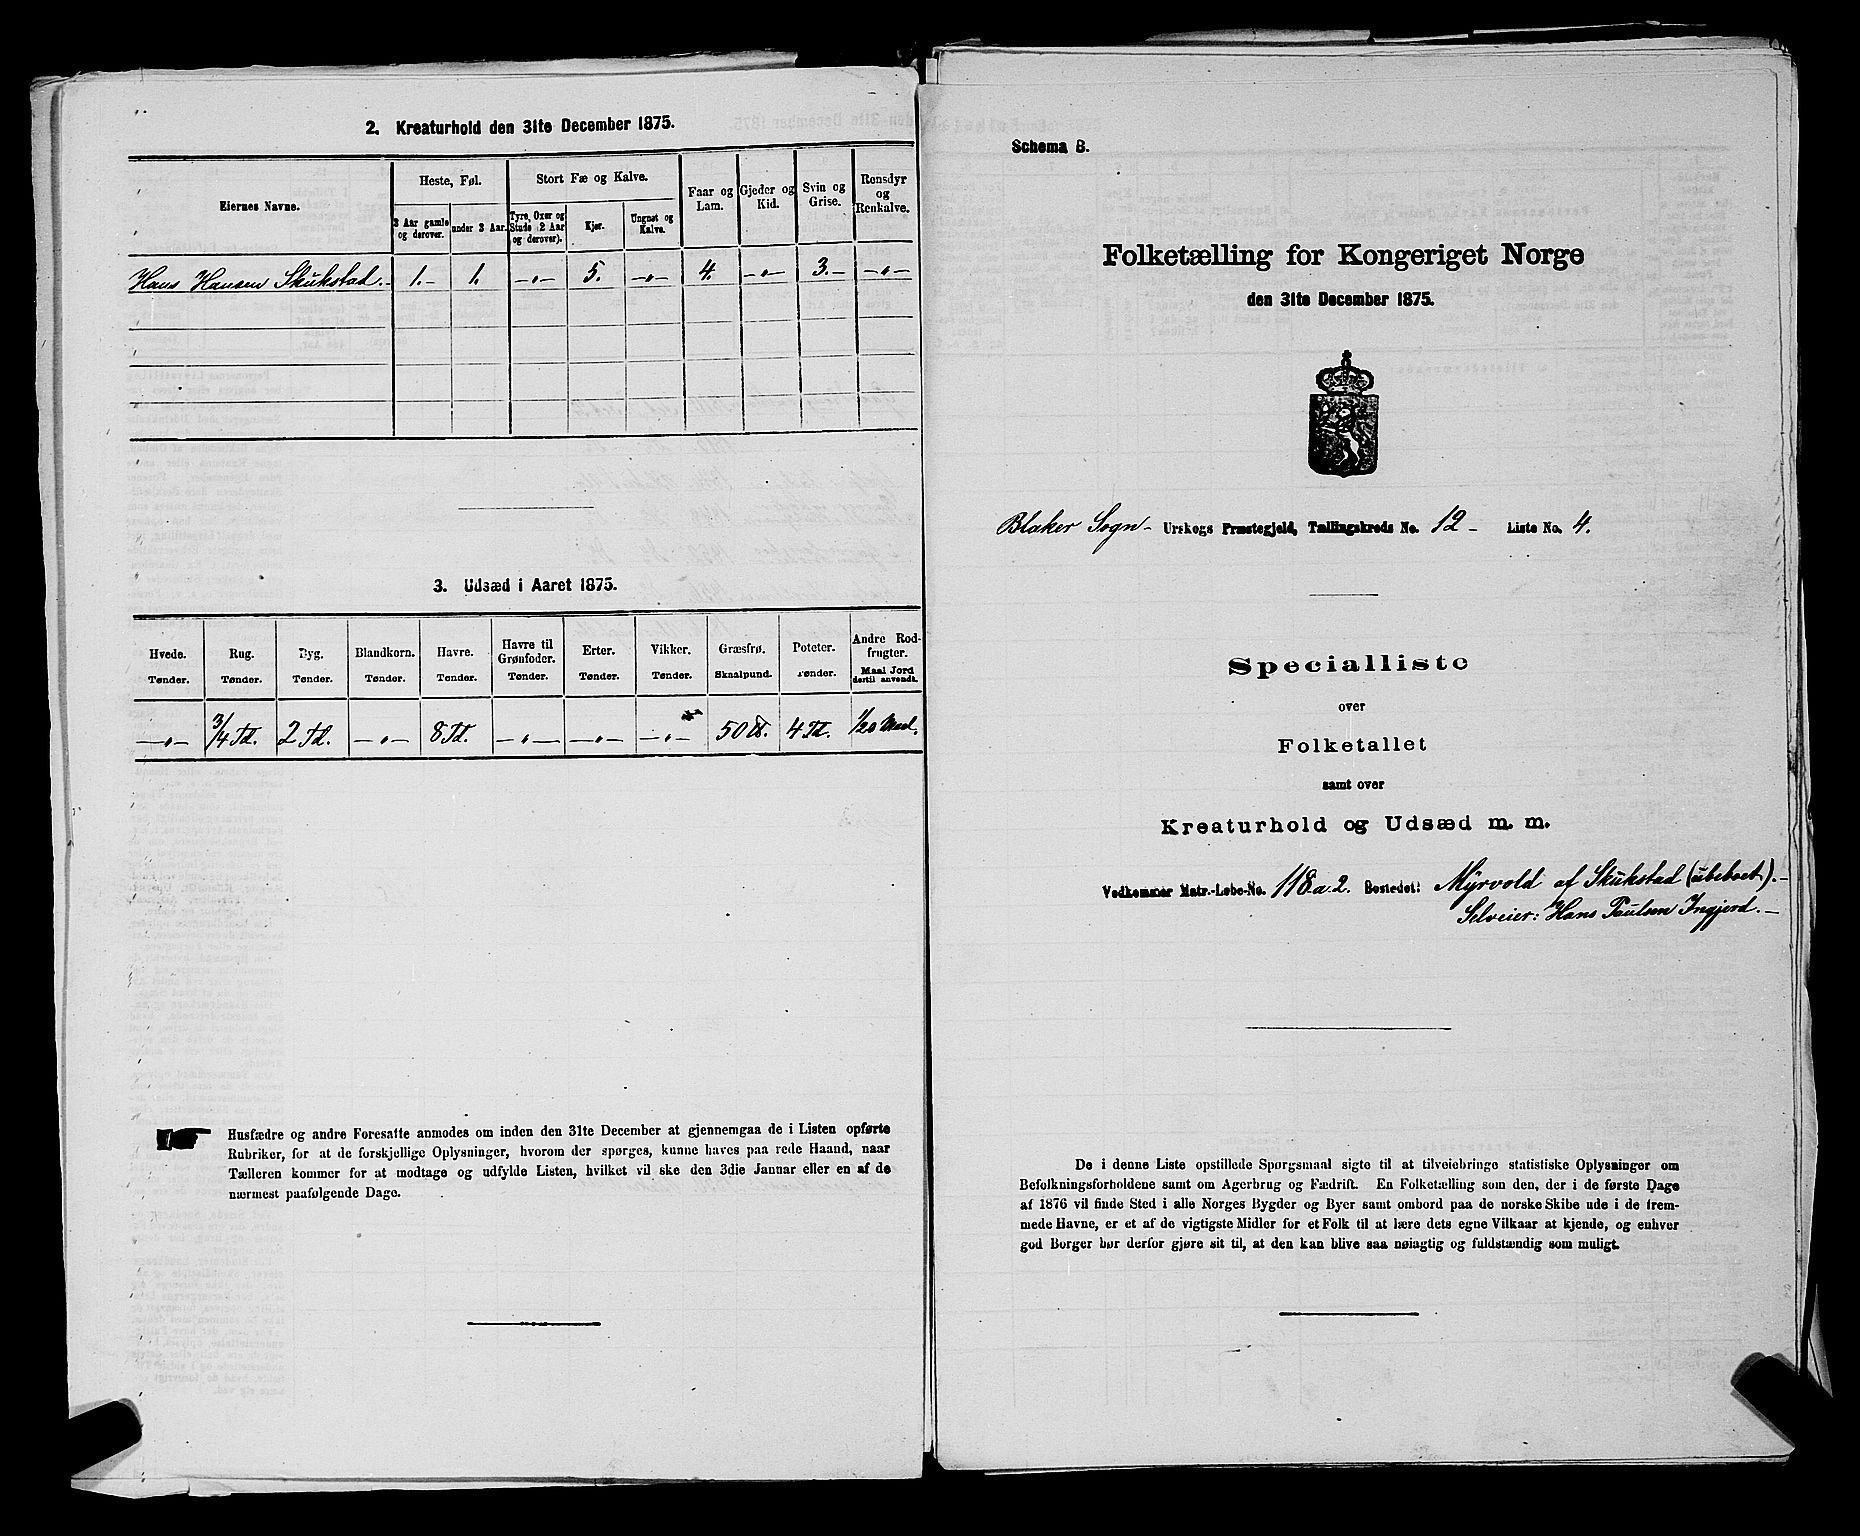 2. Kreaturhold den 31te December 1875.
Eiernes Navne.
Heste, Føl.
Stort Fæ og Kalve.
Faar og Lam.
Gjeder og Kid.
Svin og Grise.
Rensdyr og Renkalve.
3 Aar gamle og derover.
under 3 Aar.
Tyre, Oxer og Stude 2 Aar og derover).
Kjør.
Ungnøt og Kalve.
Hans Hansen Skukstad.- 1.- 1. -„- 5. -„- 4. -„- 3.- -„-
3. Udsæd i Aaret 1875.
Hvede. Rug. Byg. Blandkorn. Havre. Havre til Grønfoder. Erter. Vikker. Græsfrø. Poteter. Andre Rodfrugter.
Tønder. Tønder. Tønder. Tønder. Tønder. Tønder. Tønder. Tønder. Skaalpund. Tønder. Maal Jord dertil anvendt.
-„- 3/4 Td. 2 Td. -„- 8 Td. -„- -„- -„- 50 ℔. 4 Td. 1/20 Maal.
Husfædre og andre Foresatte anmodes om inden den 31te December at gjennemgaa de i Listen opførte
Rubriker, for at de forskjellige Oplysninger, hvorom der spørges, kunne haves paa rede Haand, naar
Tælleren kommer for at modtage og udfylde Listen, hvilket vil ske den 3die Januar eller en af de
nærmest paafølgende Dage.
Schema B.
Folketælling for Kongeriget Norge
den 31te December 1875.
Blaker Sogn - Urskogs Præstegjeld, Tællingskreds No. 12 - Liste No. 4.
Specialliste
over
Folketallet
samt over
Kreaturhold og Udsæd m. m.
Vedkommer Matr.-Løbe-No. 118.a.2. Bostedet: Myrvold af Skukstad (ubeboet).-
Selveier: Hans Paulsen Ingjerd.-
De i denne Liste opstillede Spørgsmaal sigte til at tilveiebringe statistiske Oplysninger om
Befolkningsforholdene samt om Agerbrug og Fædrift. En Folketælling som den, der i de første Dage
af 1876 vil finde Sted i alle Norges Bygder og Byer samt ombord paa de norske Skibe ude i de frem-
mede Havne, er et af de vigtigste Midler for et Folk til at lære dets egne Vilkaar at kjende, og enhver
god Borger bør derfor gjøre sit til, at den kan blive saa nøiagtig og fuldstændig som muligt.